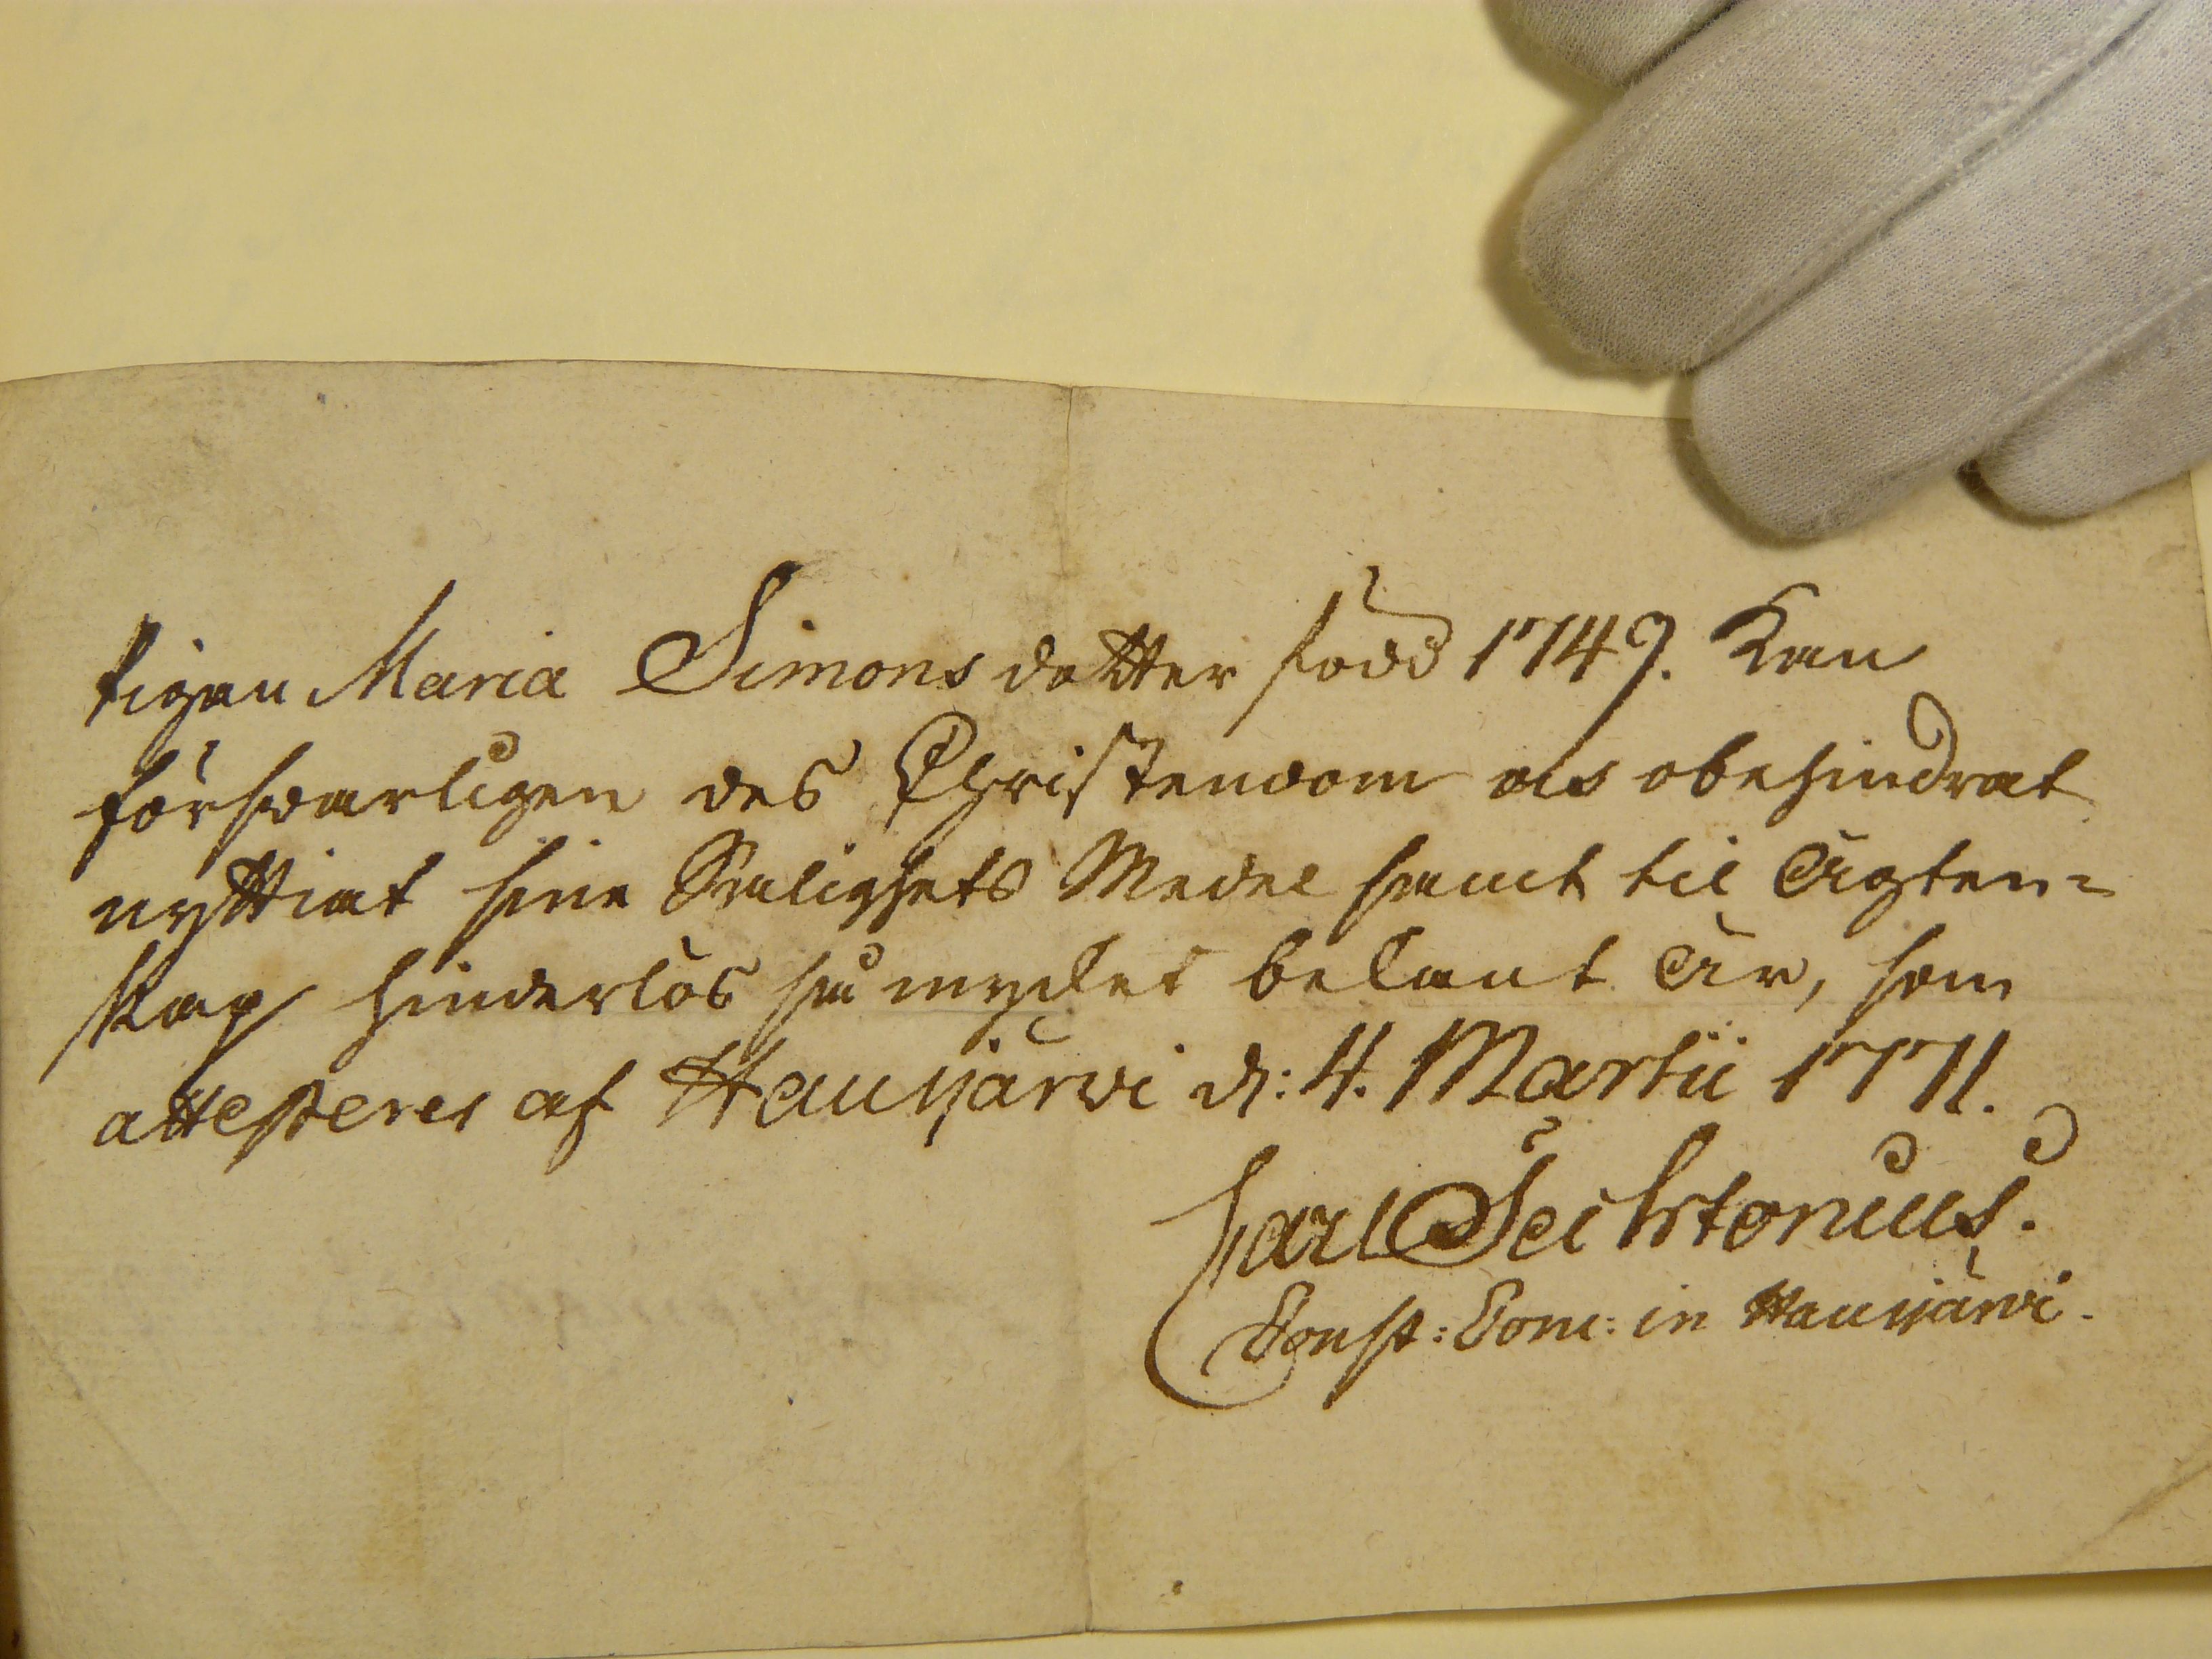 Pigan Maria Simons dotter född 1749. Kan
försvarligen des Christendom oc obehindrat
nyttiat sine Salighets Medel samt til ägten=
skap hinderlös så mycket bekant är, som
attesteres af Hausjärvi d: 4. Martii 1771.
Carl
Const: Com: in Hausjärvi.